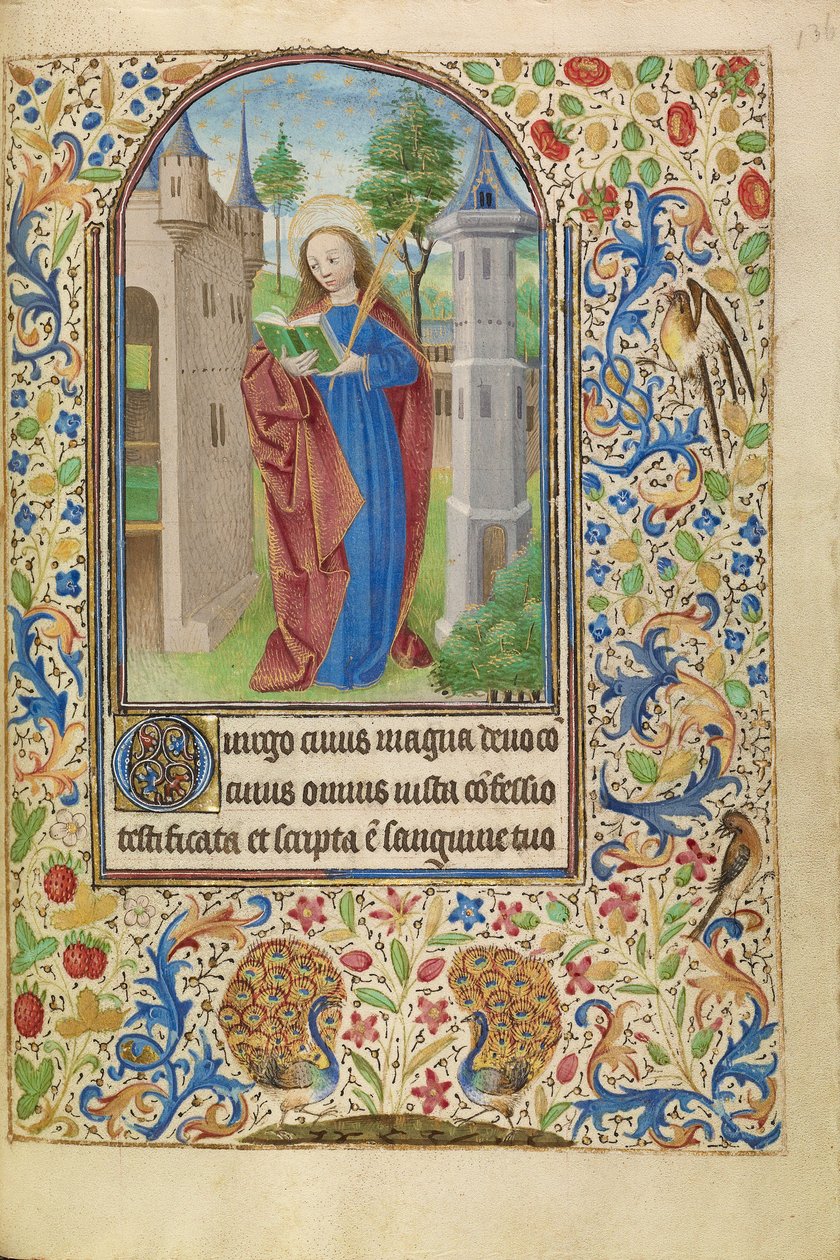 136
O uirgo cuius magna deuocō
cuius omnis iusta cōfessio
testificata et scripta ē sanguine tuo